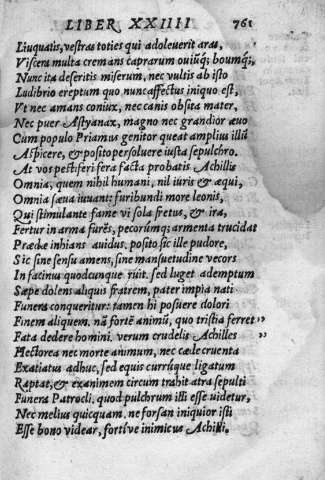 LIBER XXIIII 761
Liuquatis, vestras toties qui adoleuerit aras,
Viscera multa cremans caprarum ouiūq; boumq;,
Nunc ita deseritis miserum, nec vultis ab isto
Ludibrio ereptum quo nunc affectus iniquo est,
Vt nec amans coniux, nec canis obsita mater,
Nec puer Astyanax, magno nec grandior æuo
Cum populo Priamus genitor queat amplius illū
Aspicere, & posito persoluere iusta sepulchro.
At vos pestiferi fera facta probatis Achillis
Omnia, quem nihil humani, nil iuris & æqui,
Omnia sæua iuuant: furibundi more leonis,
Qui stimulante fame vi sola fretus, & ira,
Fertur in arma furēs, pecorumq; armenta trucidat
Prædæ inhians auidus. posito sic ille pudore,
Sic sine sensu amens, sine mansuetudine vecors
In facinus quodcunque ruit. sed luget ademptum
Sæpe dolens aliquis fratrem, pater impia nati
Funera conqueritur: tamen hi posuere dolori
Finem aliquem. nā fortē animū, quo tristia ferret ,,
Fata dedere homini. verum crudelis Achilles ,,
Hectorea nec morte animum, nec cæde cruenta
Exatiatus adhuc, sed equis currúque ligatum
Raptat, & exanimem circum trahit atra sepulti
Funera Patrocli. quod pulchrum illi esse uidetur,
Nec melius quicquam. ne forsan iniquior isti
Esse bono videar, fortíve inimicus Achilli.